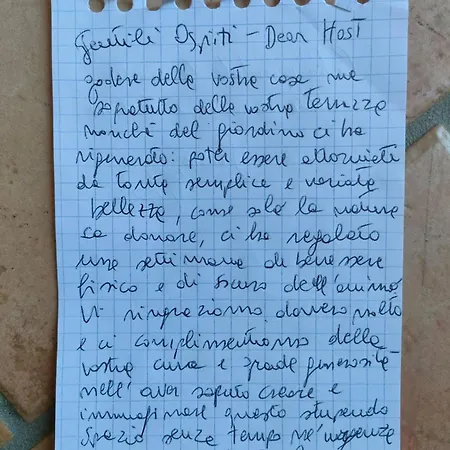 Gentili Ospiti – Dear Host
godere della vostra casa ma
sopratutto della vostra terrazza
nonché del giardino ci ha
rigenerato: poter essere attorniati
da tante semplice e variate
bellezze, come solo la natura
sa donare, ci ha regalato
una settimana di benessere
fisico e di sicuro dell'animo
Vi ringraziamo davvero molto
e ci complimentiamo della
vostra cura e grande generosità
nell'aver saputo creare e
immaginare questo stupendo
spazio senza tempo né urgenze